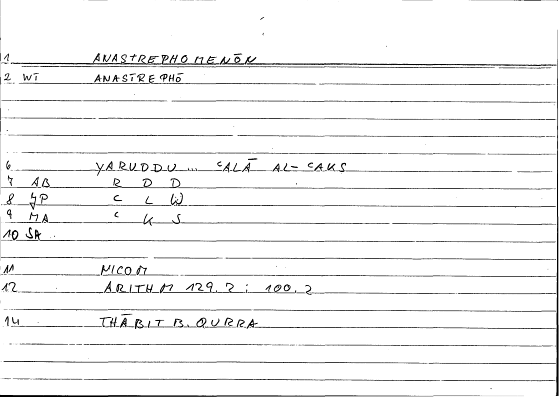 1 ANASTREPHOMENŌN
2 WT ANASTREPHŌ
6 YARUDDU ... ʿALĀ AL-ʿAKS
7 AB R D D
8 JP ʿ L W
9 MA ʿ K S
10 SA
11 NICOM
12 ARITHM 129.2 : 100.2
14 THĀBIT B. QURRA